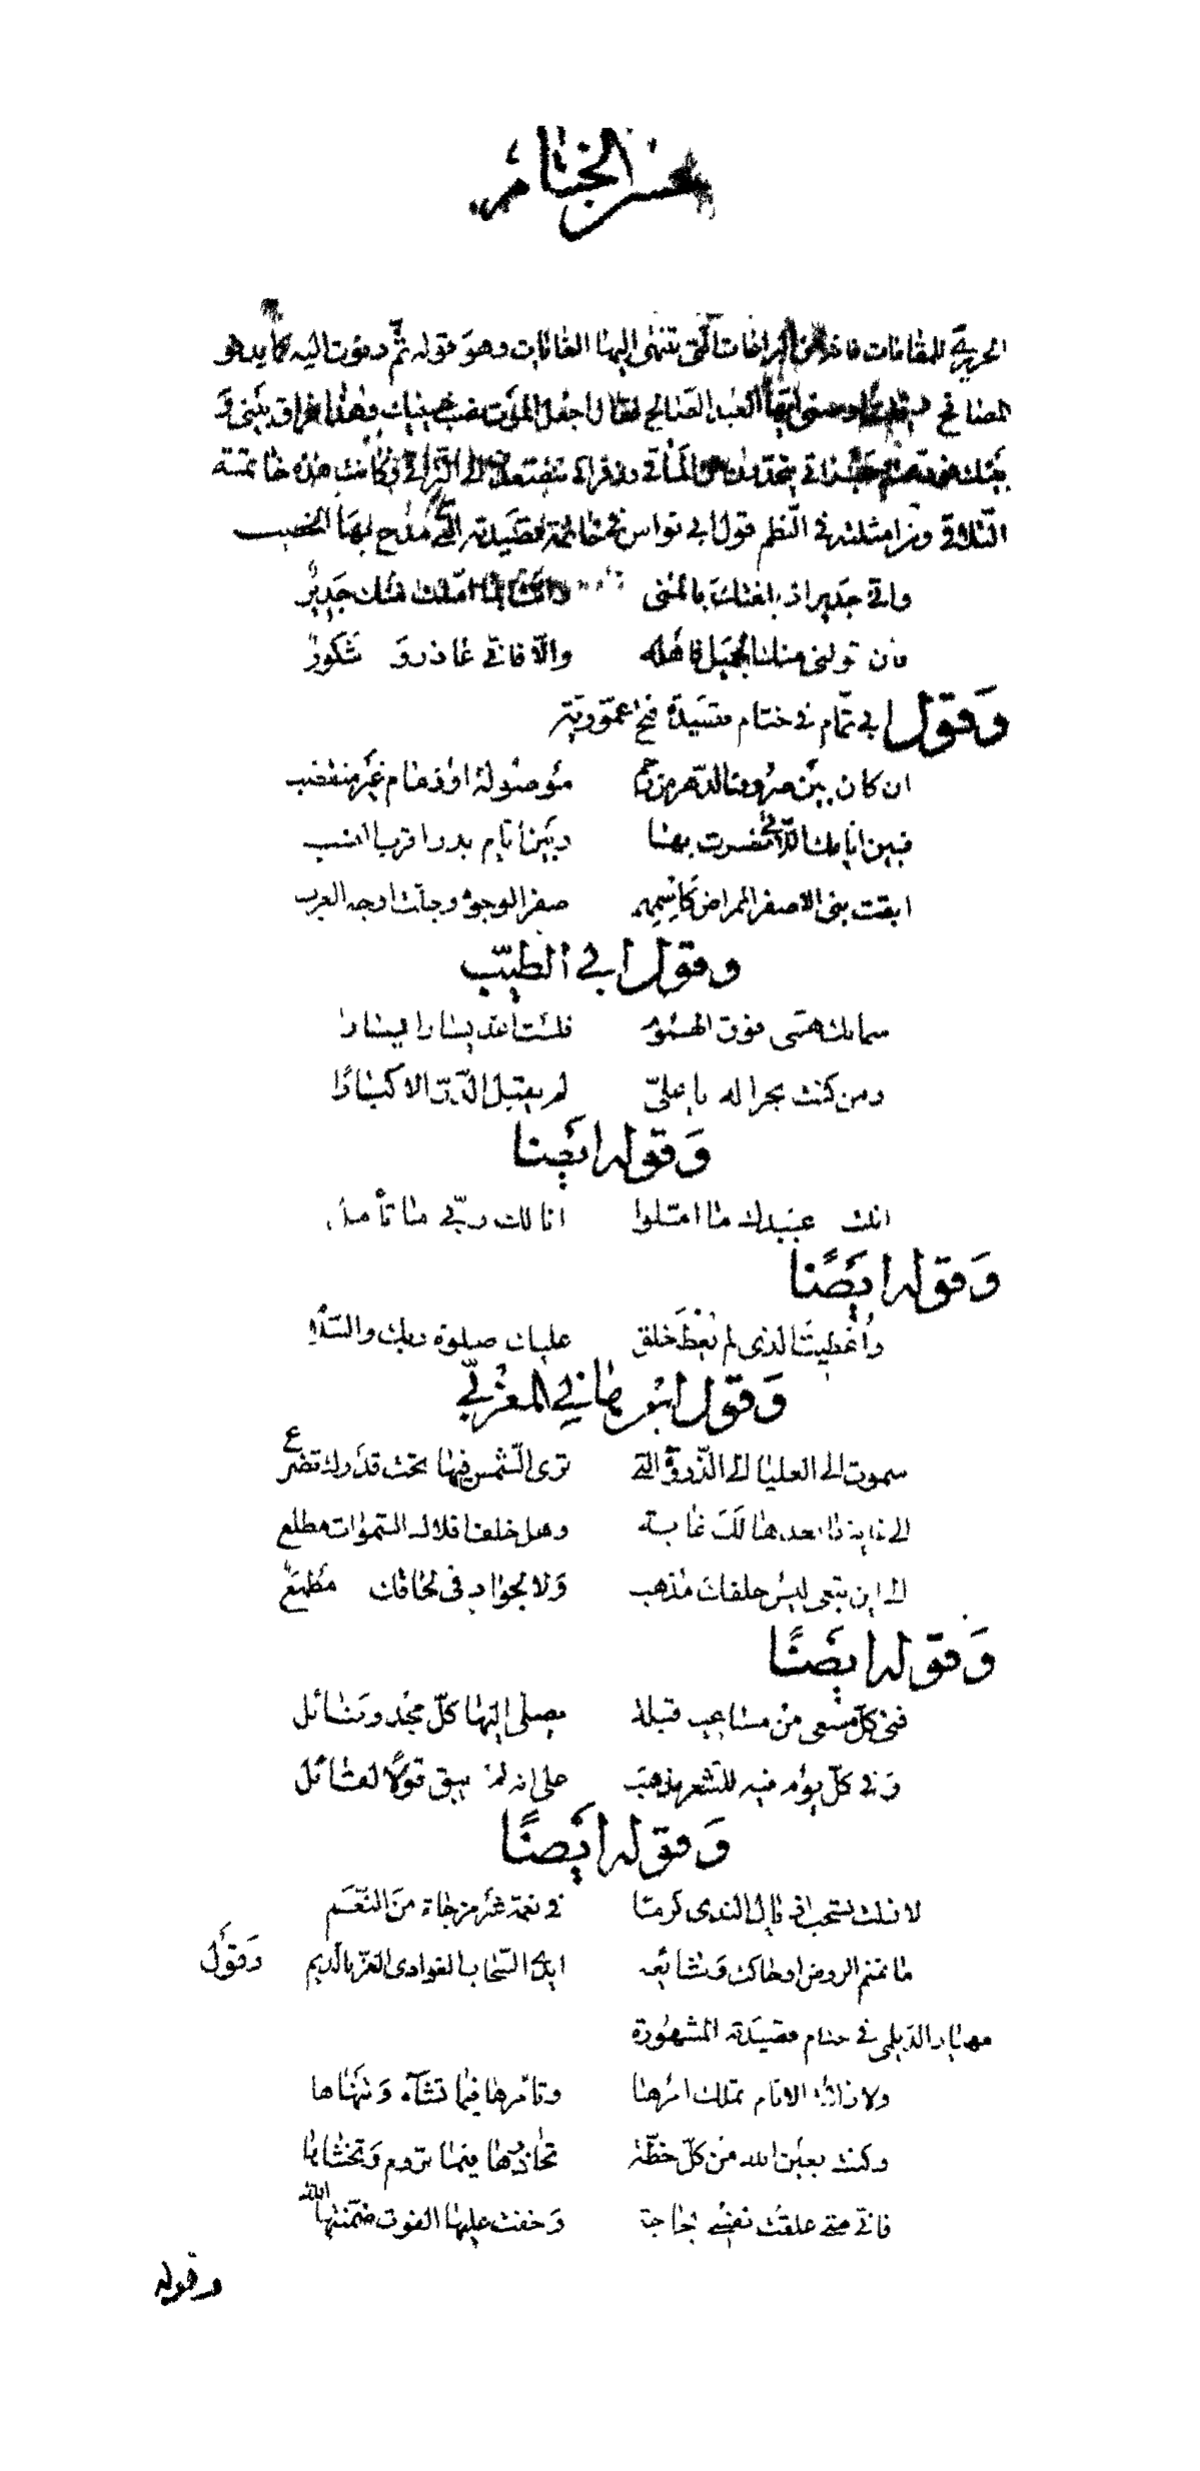 حسن الختام
الحريري للمقامات فانه من البراعات التي تنتهي اليها الغايات وهو قوله ثم دنوت اليه كما يدنو
المصافح وقلت اوصني ايها العبد الصالح فقال اجعل الموت نصب عينيك وهذا فراق بيني و
بينك فودعته وعبراتي يتحدرن من المآقي وزفراتي يتصعدن الى التراقي وكانت هذه خاتمة
التلاقي ومن امثلته في النظم قول ابي نواس في خاتمة قصيدته التي مدح بها الخصيب
واني جدير اذ بلغتك بالمنى وانت بما املت منك جدير
فان تولني منك الجميل فاهله والا فاني عاذر و شكور
وقول ابي تمام في ختام قصيدة فتح عمورية
ان كان بين صروف الدهر من رحم موصولة او ذمام غير منقضب
فبين ايامك اللاتي نصرت بها وبين ايام بدر اقرب النسب
ابقت بني الاصفر الممراض كاسمهم صفر الوجوه وجلت اوجه العرب
وقول ابي الطيب
سما بك همي فوق الهموم فلست اعد يسارا يسارا
ومن كنت بحرا له يا علي لم يقبل الدر الا كبارا
وقوله ايضا
انلت عبيدك ما املوا انا لك ربي ما تأمل
وقوله ايضا
واعطيت الذي لم يعط خلق عليك صلوة ربك والسلام
وقول ابن هاني المغربي
سموت الى العليا الى الذروة التي ترى الشمس فيها تحت قدرك تضرع
الى غاية ما بعدها لك غاية وهل خلف افلاك السموات مطلع
الى اين تبغي ليس خلفك مذهب ولا لجواد في لحاقك مطمع
وقوله ايضا
ففي كل مسعى من مساعيه قبلة يصلي اليها كل مجد ونائل
وفي كل يوم فيه للشعر مذهب على انه لم يبق قولا لقائل
وقوله ايضا
لا فلك لستحب في نال الندى كرما في نعمة غير مزجاة من النعم
ما نمنم الروض او حاكت وشائعه ايدي السحاب الغوادي الغر بالديم وقول
مهيار الديلمي في ختام قصيدته المشهورة
ولا زالت الايام تملك امرها وتامرها فيما تشآء وتنهاها
وكنت بعين الله من كل خطة تحاذرها فيما تروم وتخشاها
فاني متى علقت نفسي بحاجة وخفت عليها الفوت ضمنتها الله
وقوله